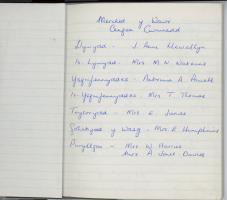 Merched y Wawr
Cangen Cwmnedd
Llywydd - J. Anne Llewellyn
Is. Lywydd - Mrs M. N. Watkins
Ysgrifennyddes -
Is-Ysgrifennyddes - Mrs T. Thomas
Trysorydd - Mrs E. Jones
Gohebydd y Wasg - Mrs E. Humphries
Pwyllgor - Mrs W. Harries
Mrs. A. Jones Davies